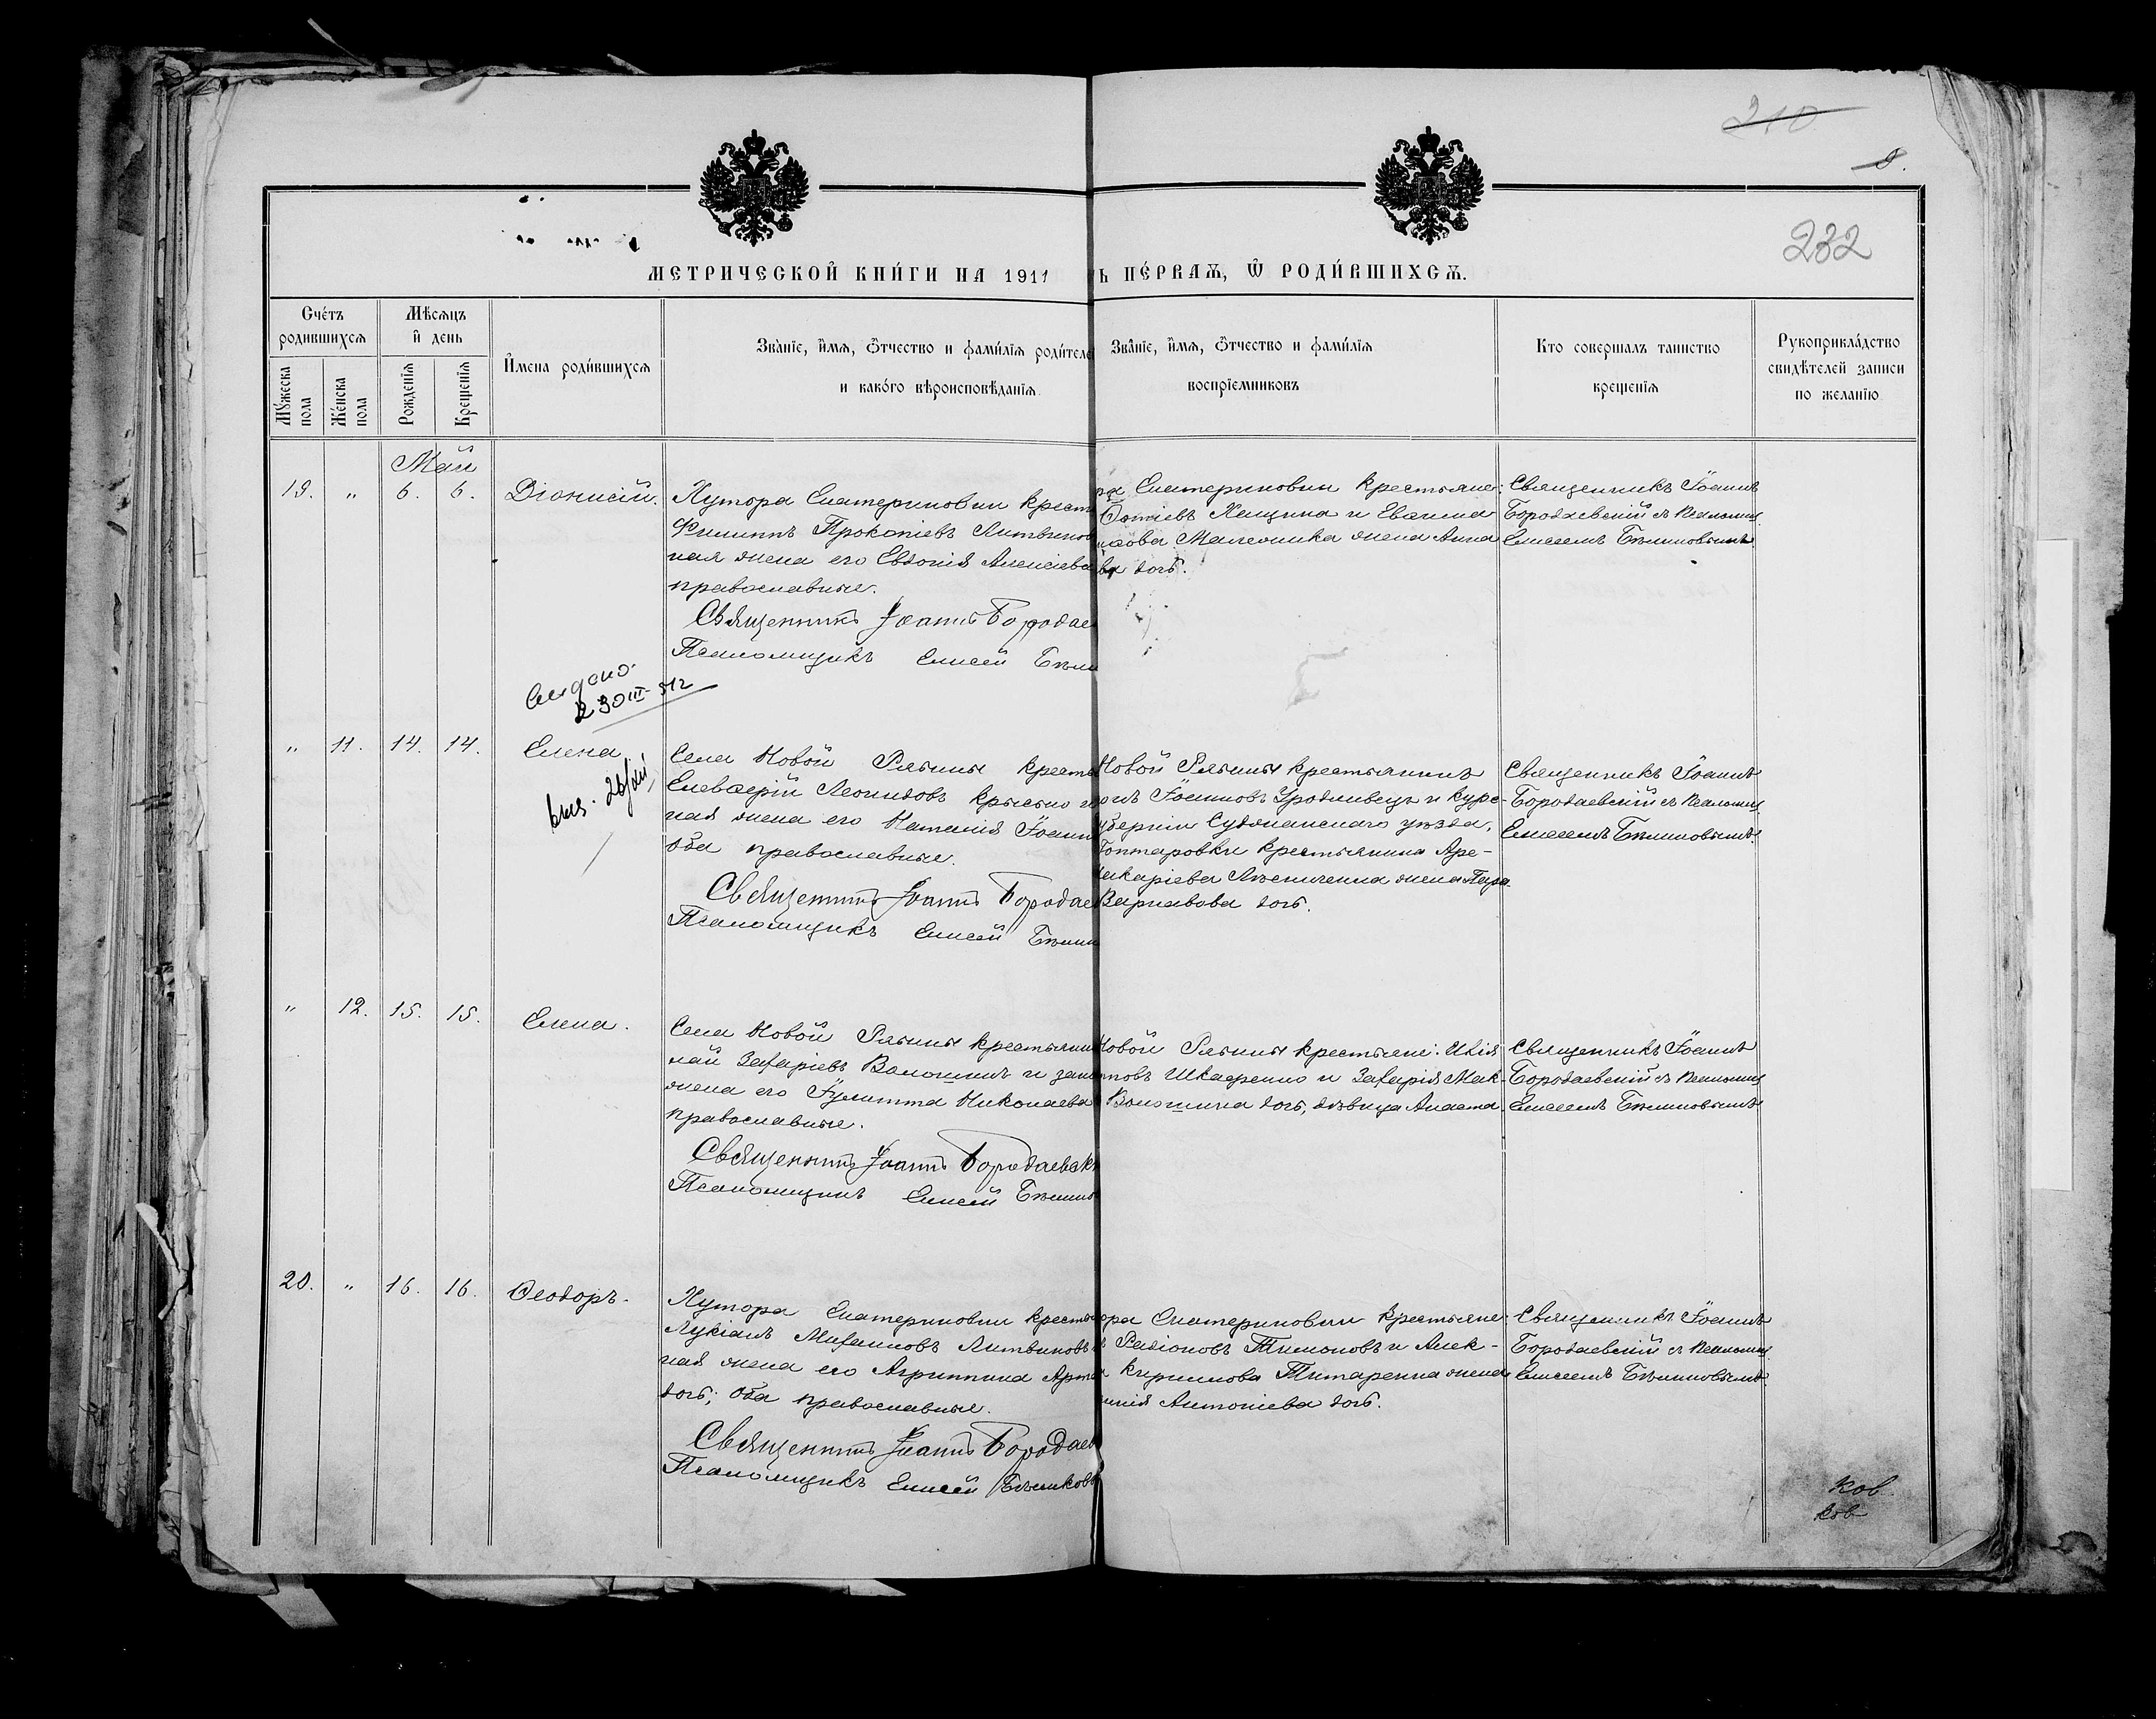 210
8.
232
МЕТРИЧЕСКОЙ КНИГИ НА 1911
Ь ПЕРВАЯ, Ѿ РОДИВШИХСЯ.
Счетъ родившихся
Мѣсяцъ и день
Мужеска пола
Женска пола
Рожденія
Крещенія
Имена родившихся
Званіе, имя, ѿчество и фамилія родителе
и какого вѣроисповѣданія.
Званіе, имя, ѿчество и фамилія
воспріемниковъ
Кто совершалъ таинство
крещенія
Рукоприкладство
свидѣтелей записи
по желанію
Май
19. " 6. 6. Діонисій.
Хутора Екатериновки крест
Филиппъ Прокопіевъ Литвинов
ная жена его Евдокія Алексіева
православные.
Священникъ Іоаннъ Бородае
Псаломщикъ Елисей Бѣли
ра Екатериновки крестьяне:
Фотіевъ Хащина и
Малсинка жена Анна
ва дочь.
Священникъ Іоаннъ
Бородаевскій съ псаломщ.
Елисеемъ Бѣликовымъ.
30 III-51г
" 11. 14. 14. Елена.
26/XII
Села Новой Рябины кресть
Елевферій Леонидовъ
ная жена его Наталія Іоанн
оба православные.
Священникъ Іоаннъ Бородае
Псаломщикъ Елисей Бѣлик
Новой Рябины крестьянинъ
Іоанновъ Уродливецъ и Курс-
губерніи Суджанскаго уѣзда,
крестьянина Аре-
жена Пара-
Варнавова дочь.
Священникъ Іоаннъ
Бородаевскій съ псаломщ.
Елисеемъ Бѣликовымъ.
" 12. 15. 15. Елена.
Села Новой Рябины крестьянин
лай Захаріевъ Волошинъ и закон
жена его Іулитта Николаева
православные.
Священникъ Іоаннъ Бородаевск
Псаломщикъ Елисей Бѣлико
Новой Рябины крестьяне: Илія
и Захарія Мак-
Волошина дочь, дѣвица Анаста
Священникъ Іоаннъ
Бородаевскій съ псаломщ
Елисеемъ Бѣликовымъ
20. " 16. 16. Ѳеодоръ.
Хутора Екатериновки кресть
Лукіанъ Михаиловъ Литвиновъ
ная жена его Агриппина Арте
дочь; оба православные.
Священникъ Іоаннъ Бородаев
Псаломщикъ Елисей Бѣликовъ
ора Екатериновки крестьяне:
Родіоновъ Тимоновъ и Алек-
Кириллова Титаренка жена
Антоніева дочь.
Священникъ Іоаннъ
Бородаевскій съ псаломщ.
Елисеемъ Бѣликовымъ.
ков
ков